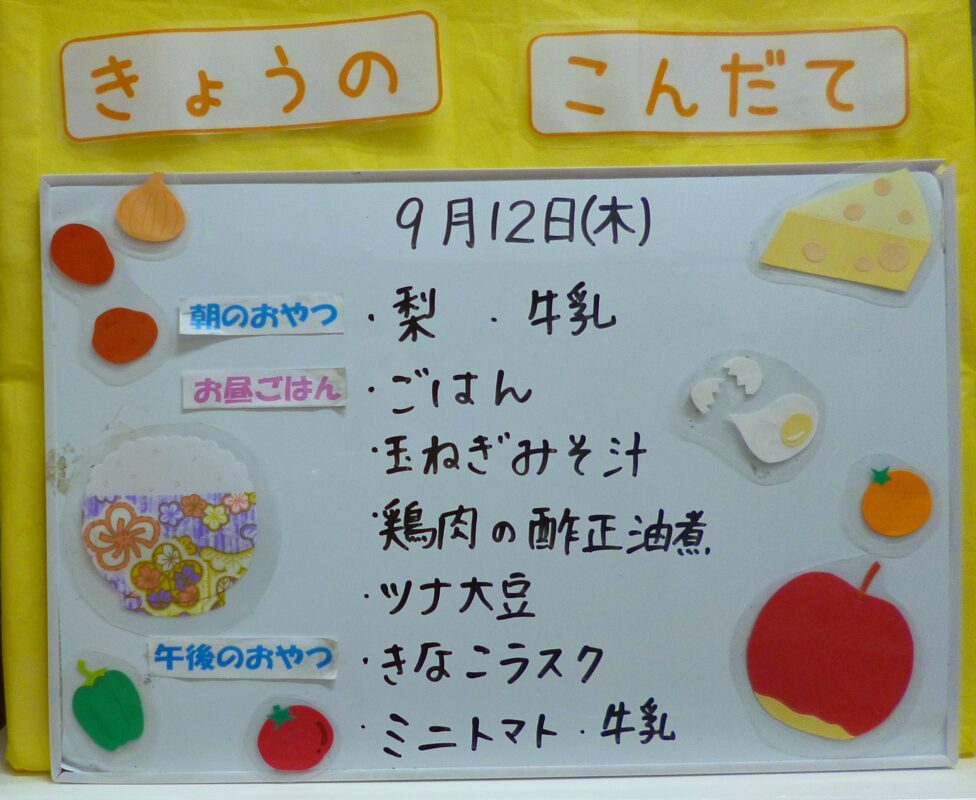 きょうの こんだて
9月12日(木)
朝のおやつ ・梨 ・牛乳
お昼ごはん ・ごはん
・玉ねぎみそ汁
・鶏肉の酢正油煮
・ツナ大豆
午後のおやつ ・きなこラスク
・ミニトマト・牛乳